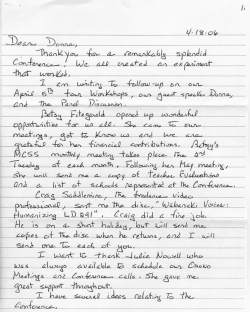 1.
4-18-06
Dear Donna,
Thank you for a remarkably splendid
Conference! We all created an experiment
that worked.
I am writing to follow-up on our
April 8th four Workshops, our guest speaker Donna,
and the Panel Discussion.
Betsy Fitzgerald opened up wonderful
opportunities for us all. She came to our
meetings, got to know us and we are
grateful for her financial contributions. Betsy's
MCSS monthly meeting takes place the 2nd
Tuesday of each month. Following her May meeting,
she will send me a copy of teacher Evaluations
and a list of schools represented at the Conference.
Craig Saddlemire, the freelance video
professional, sent me the disc,
Humanizing L.D. 291". Craig did a fine job.
He is on a short holiday, but will send me
copies of the disc when he returns, and I will
send one to each of you.
I want to thank Julie who
was always available to schedule our Orono
Meetings and Conference calls. She gave me
great support throughout.
I have several ideas relating to the
Conference.